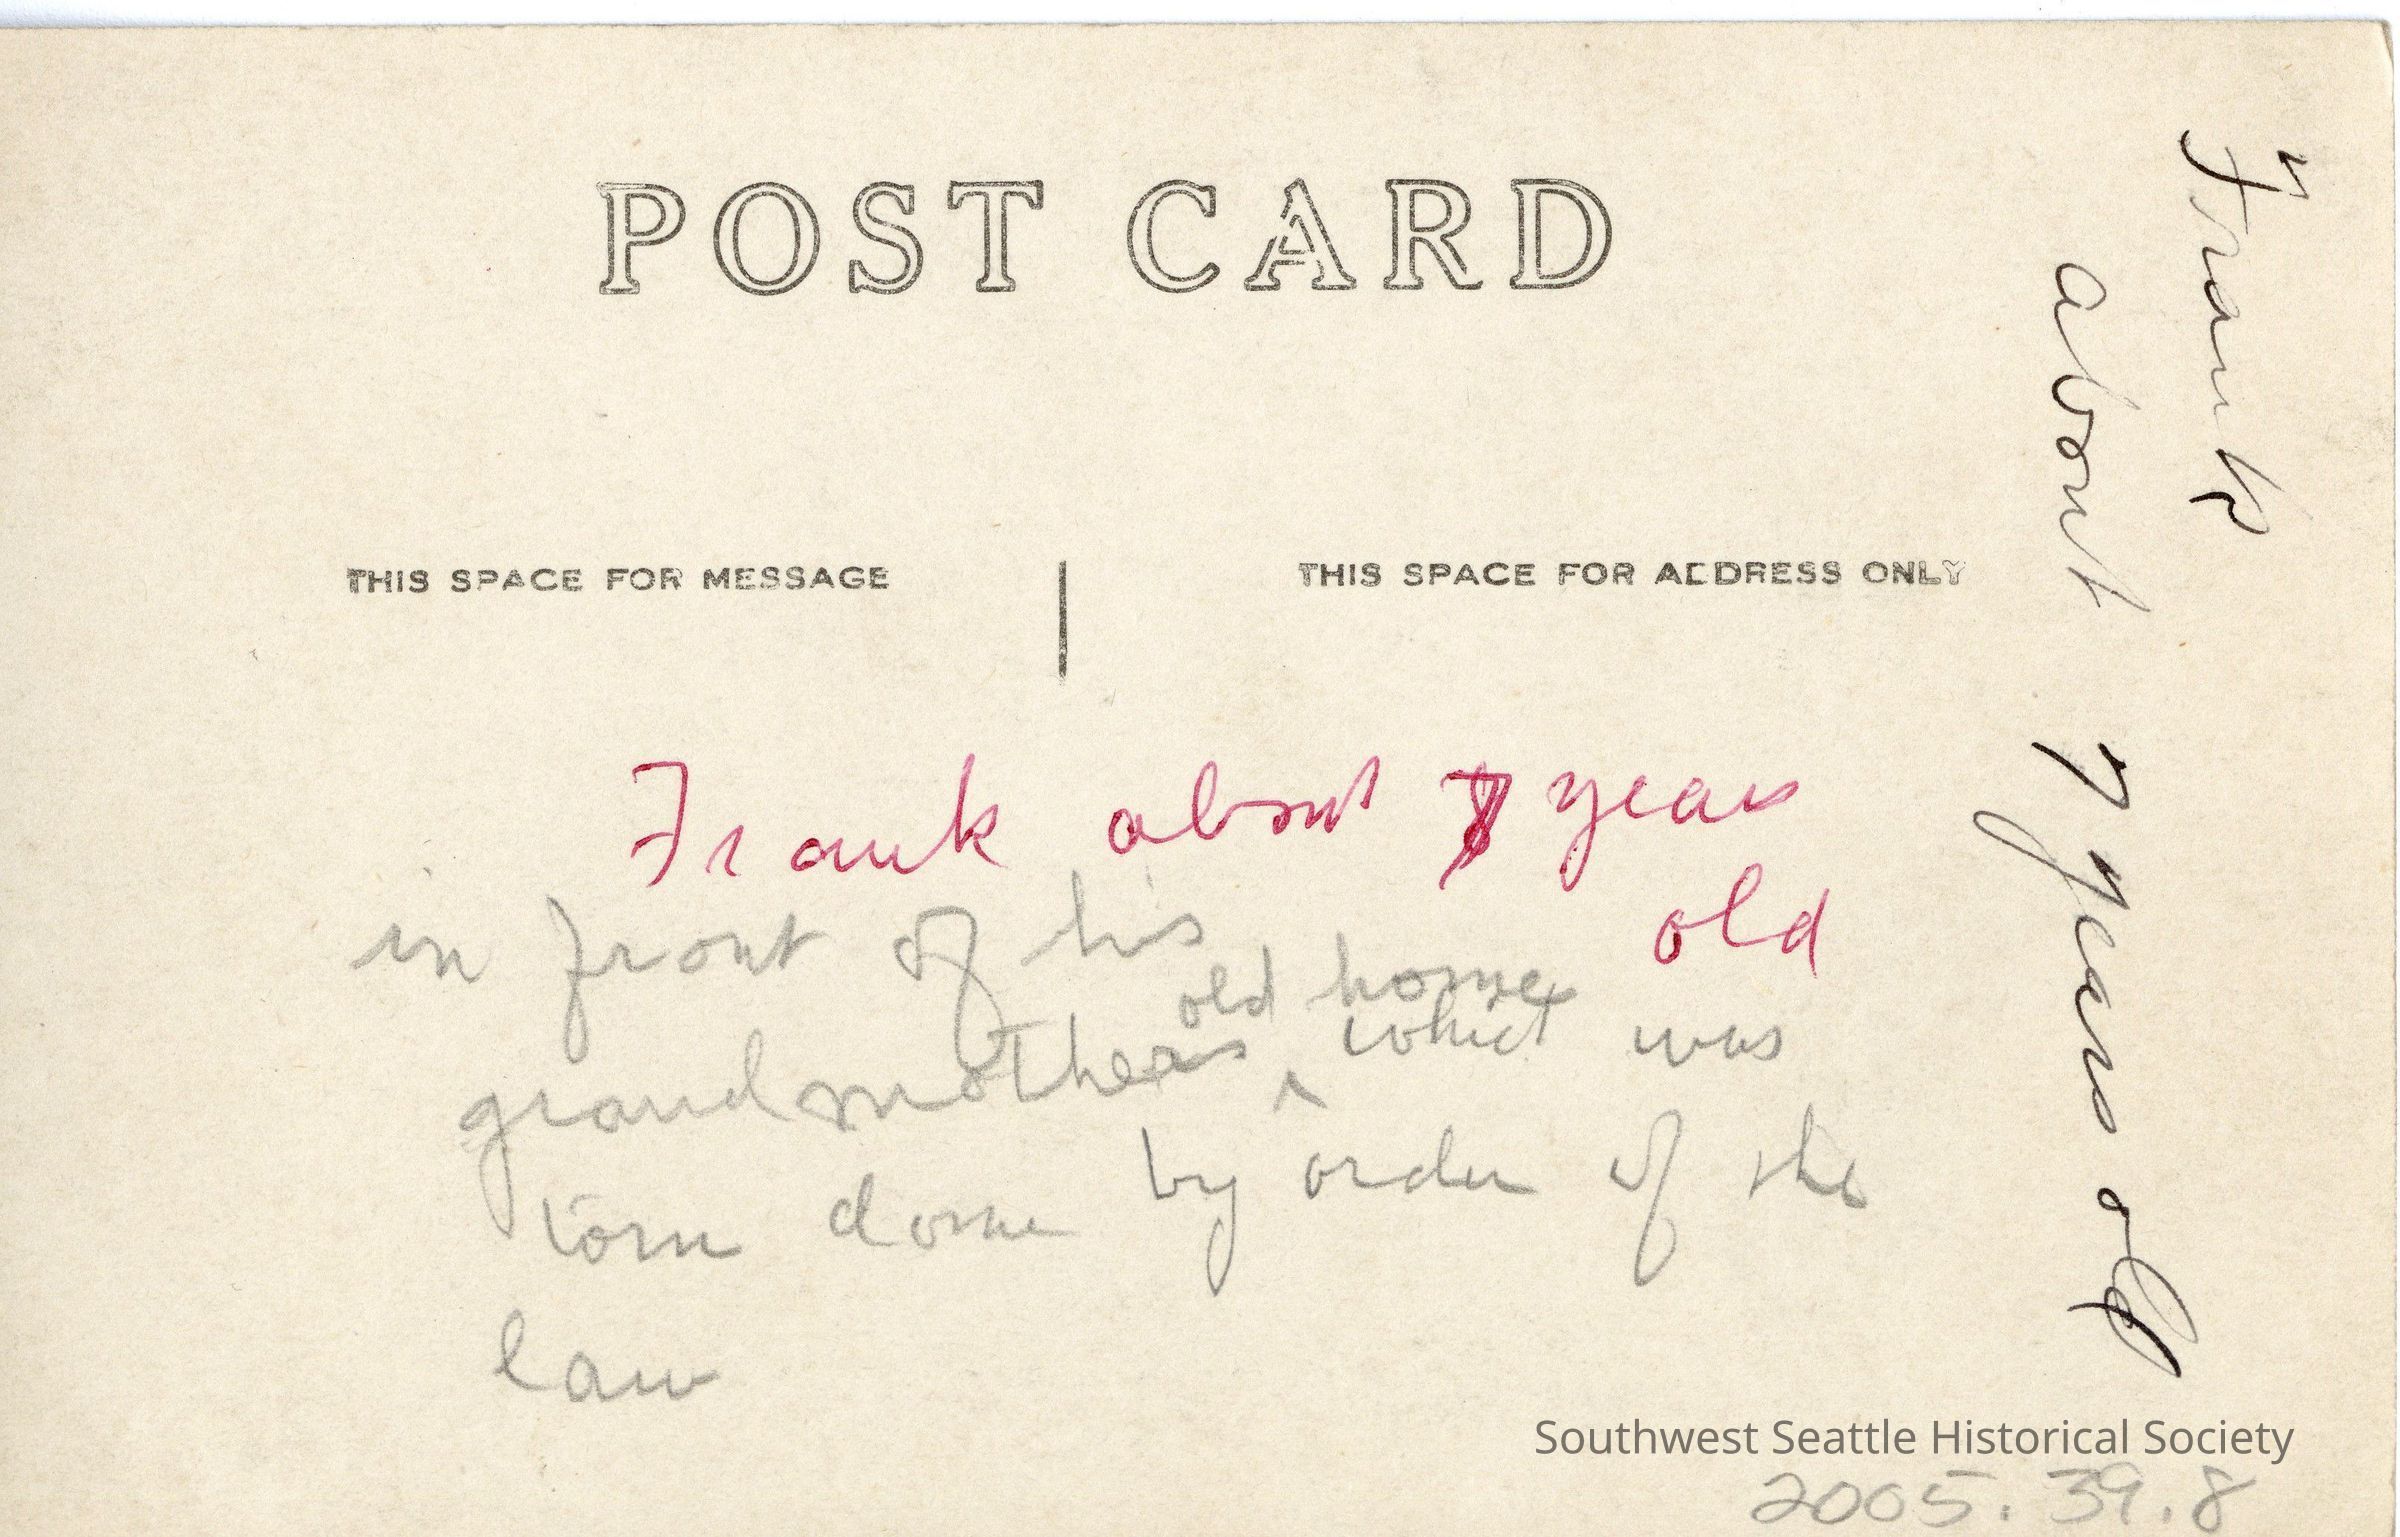 POST CARD
THIS SPACE FOR MESSAGE
THIS SPACE FOR ADDRESS ONLY
Frank about 7 years
old
in front of his
old home
grandmothers ^ which was
torn down by order of the
law
Frank
about 7 years old
Southwest Seattle Historical Society
2005.39.8